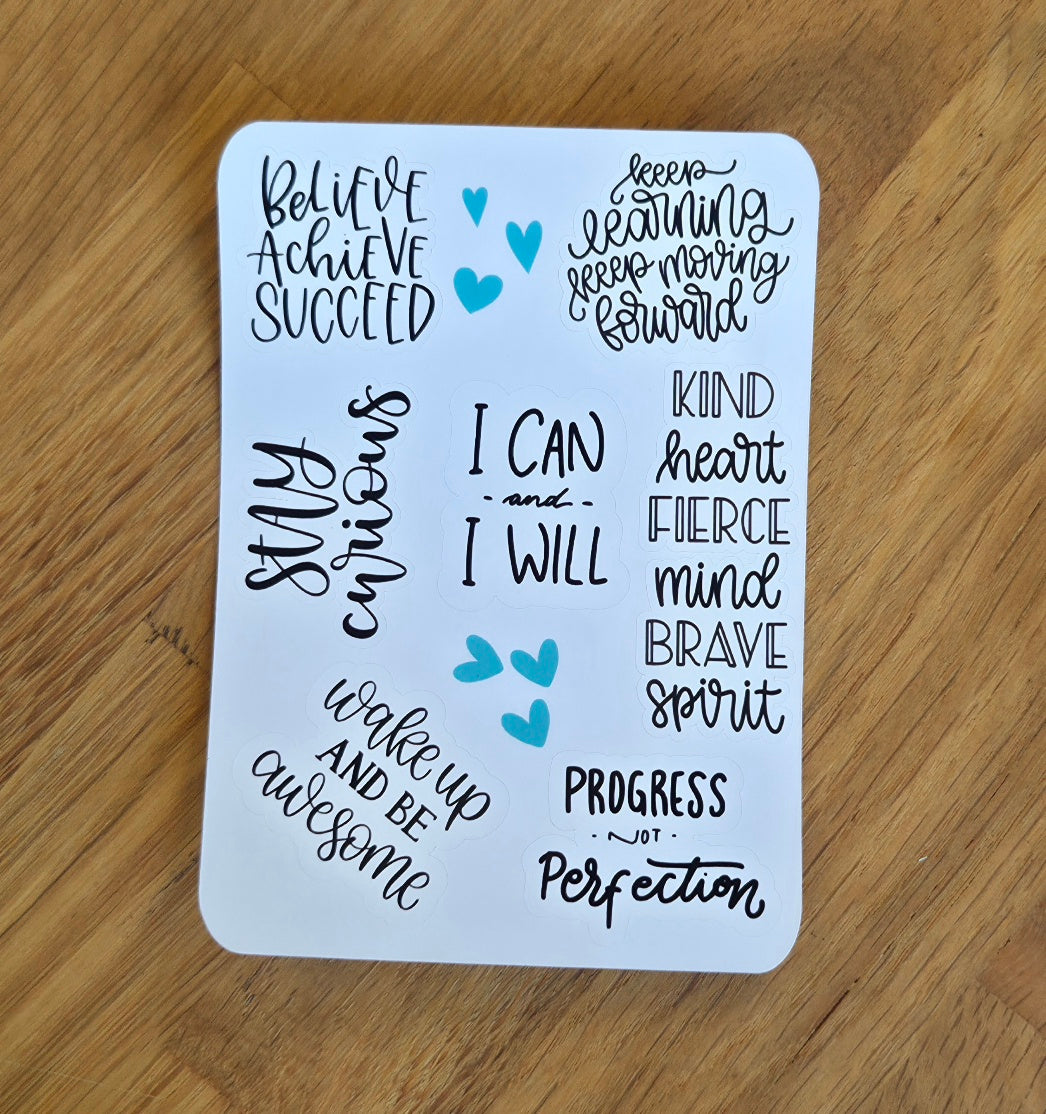 BELiEVE
AchiEVE
SUCCEED
keep
learning
keep moving
forward
STAY
curious
I CAN
- and -
I WILL
KIND
heart
FIERCE
mind
BRAVE
spirit
wake up
AND BE
awesome
PROGRESS
· NOT ·
Perfection